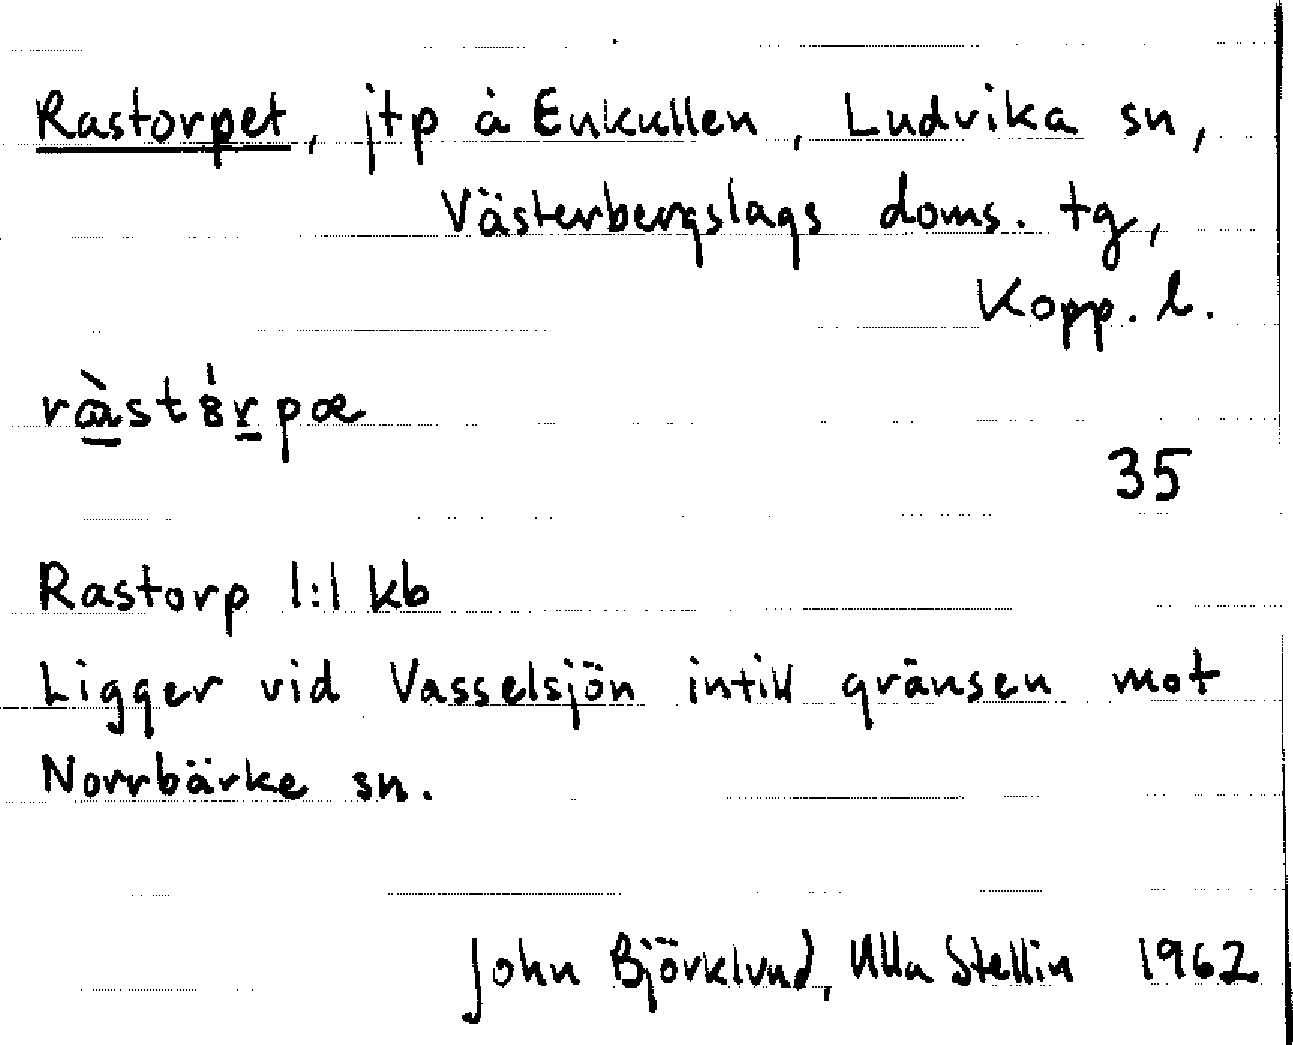 Rastorpet, jtp å Enkullen, Ludvika sn,
Västerbergslags doms. tg,
Kopp. l.
35
Rastorp 1:1 kb
Ligger vid Vasselsjön intill gränsen mot
Norrbärke sn.
John Björklund, Ulla Stellin 1962